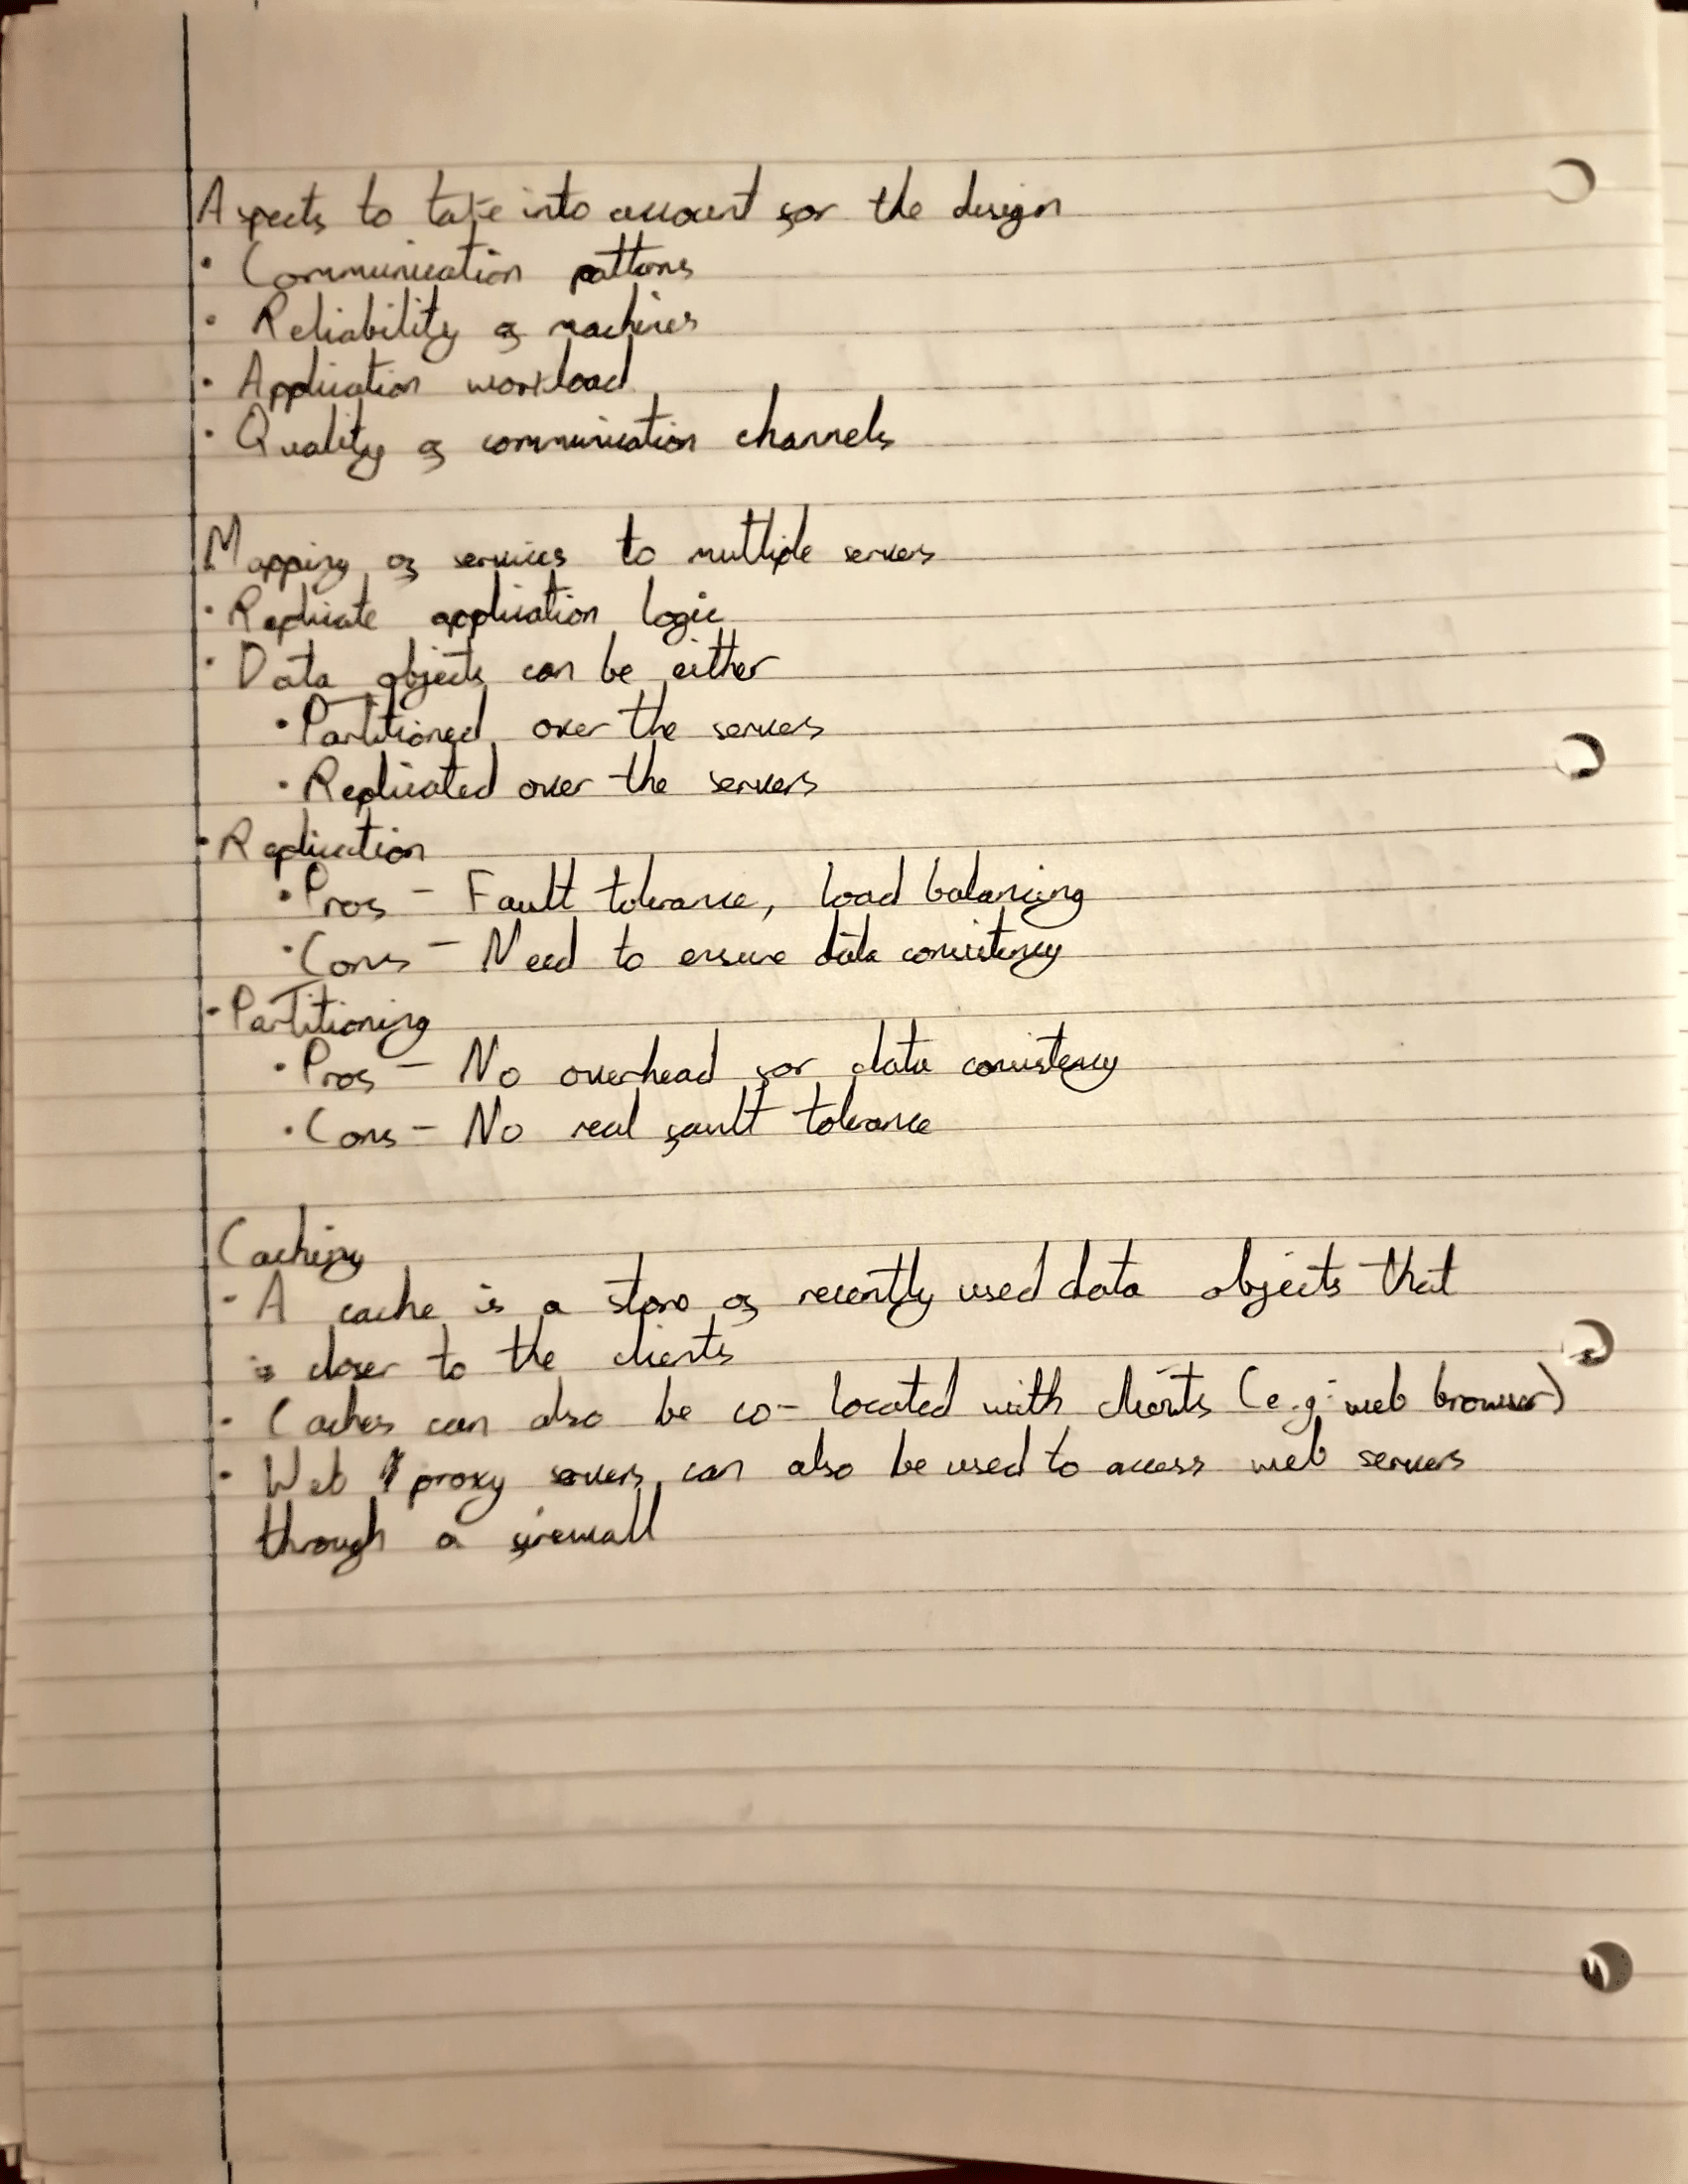 Aspects to take into account for the design
• Communication patterns
• Reliability of machines
• Application workload
• Quality of communication channels
Mapping of services to multiple servers
• Replicate application logic
• Data objects can be either
• Partitioned over the servers
• Replicated over the servers
• Replication
• Pros - Fault tolerance, load balancing
• Cons - Need to ensure data consistency
• Partitioning
• Pros - No overhead for data consistency
• Cons - No real fault tolerance
Caching
• A cache is a store of recently used data objects that
is closer to the clients
• Caches can also be co-located with clients (e.g: web browser)
• Web proxy servers can also be used to access web servers
through a firewall